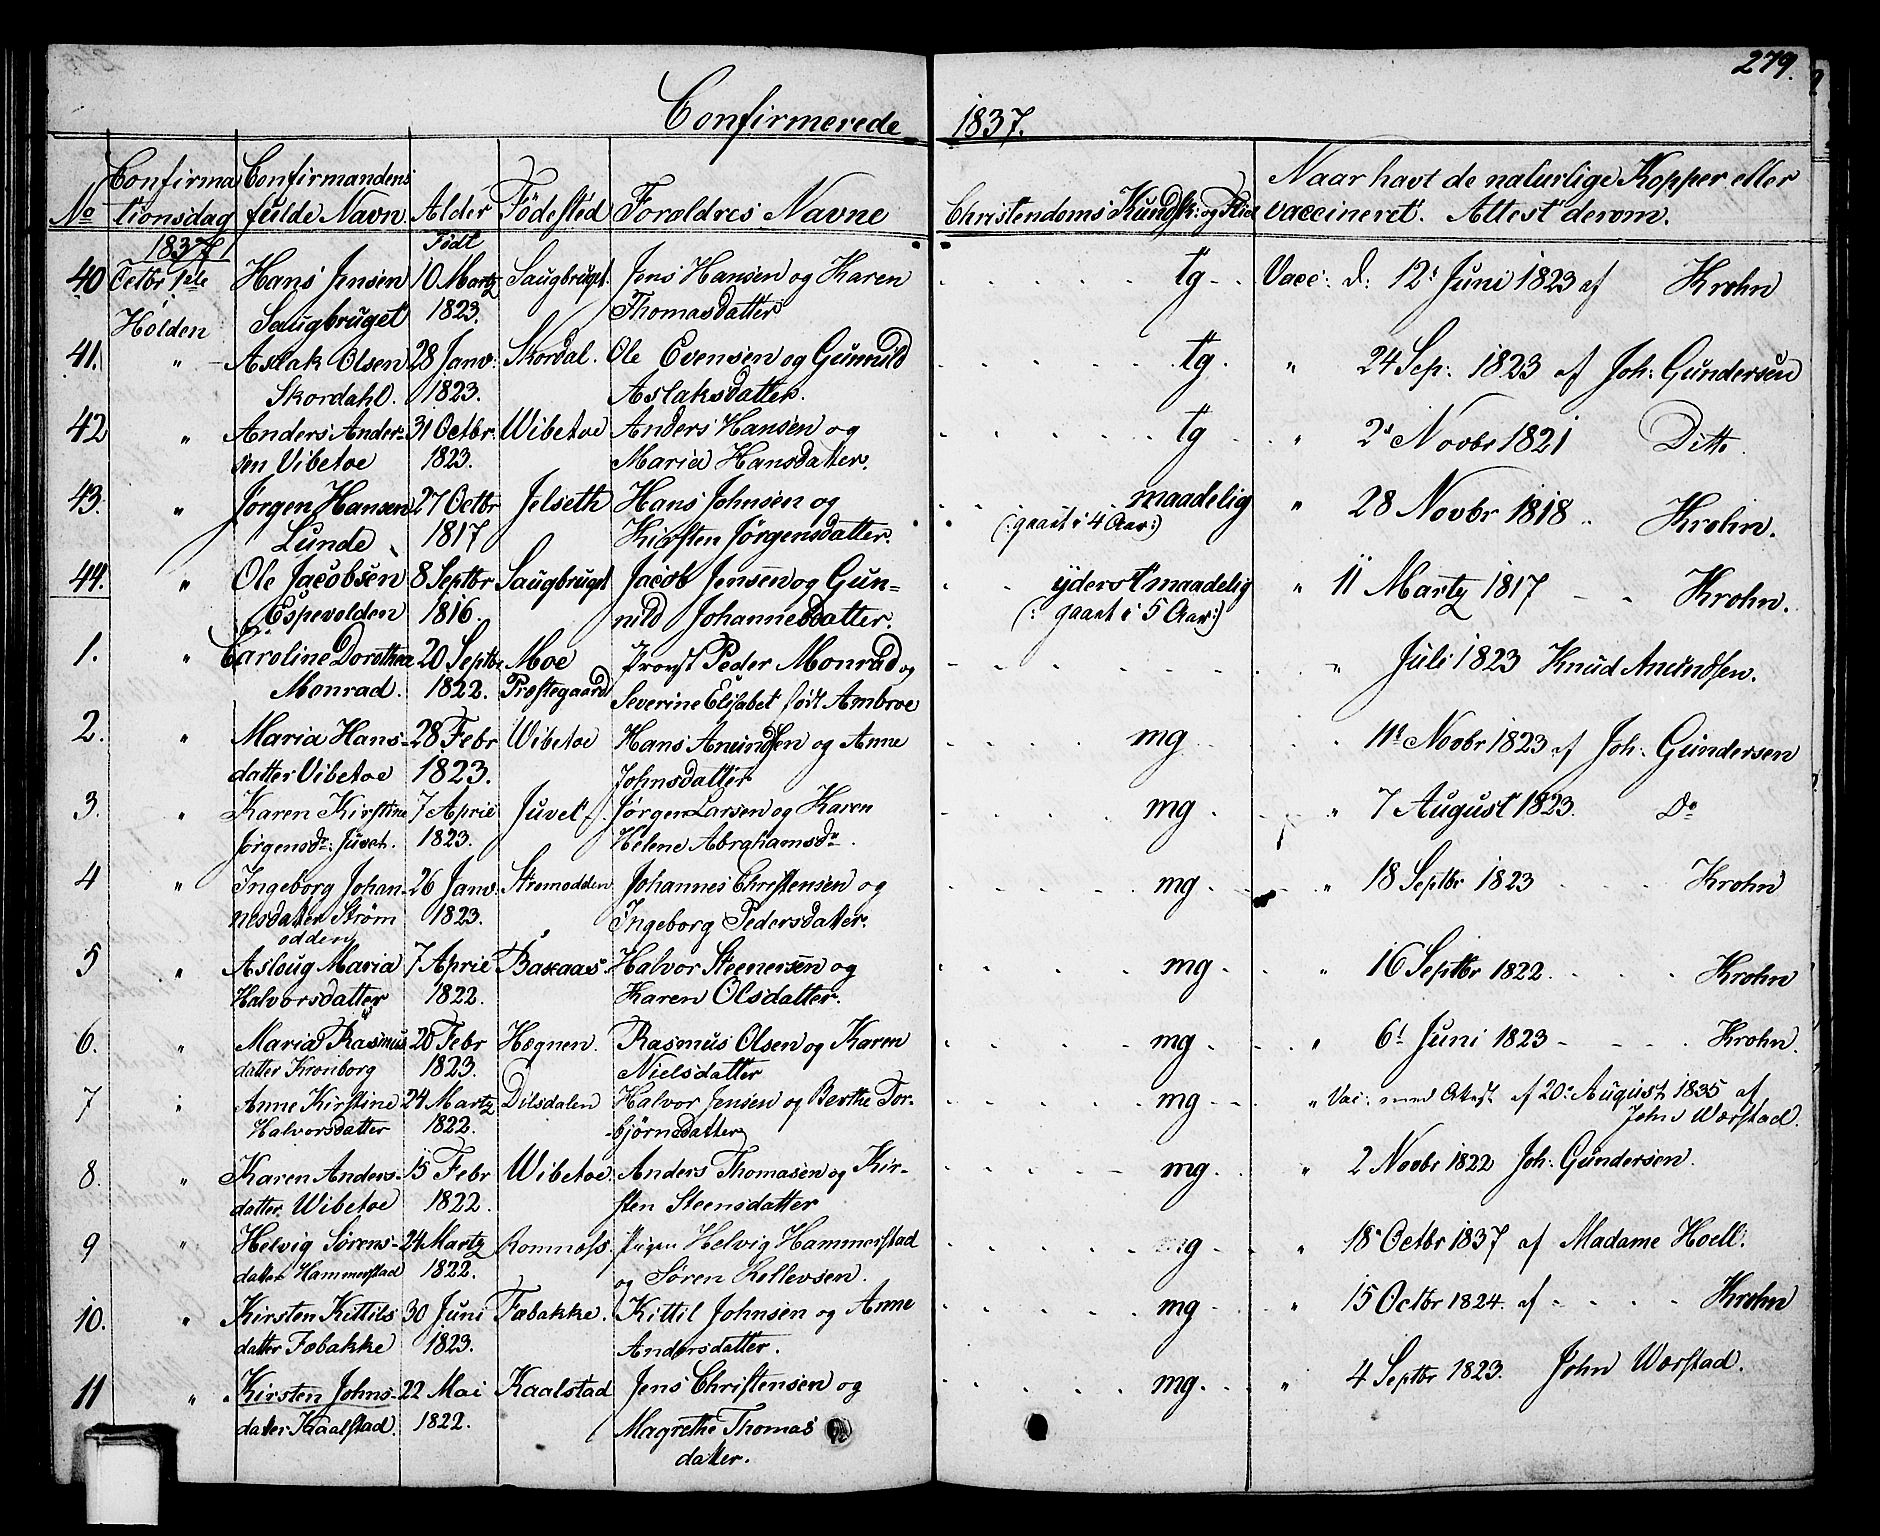 279.
Confirmerede 1837.
No Confirmationsdag Confirmandens fulde Navn Alder Födested Forældres Navne Christendoms Kundsk: og Flid Naar havt de naturlige Kopper eller vaccineret. Attest derom.
1837 Født
40 Octbr 1ste Hans Jensen 10 Martz Saugbruget. Jens Hansen og Karen tg Vacc: d: 12: Juni 1823 af Krohn
Holden Saugbruget 1823. Thomasdatter
41. " Aslak Olsen 28 Janv: Skordal. Ole Evensen og Gunnild tg. " 24 Sep: 1823 af Joh: Gundersen
Skordahl. 1823. Aslaksdatter.
42 " Anders Ander- 31 Octbr. Wibetoe Anders Hansen og tg " 2: Novbr 1821 Ditto
sen Vibetoe 1823. Maria Hansdatter.
43. " Jørgen Hansen 27 Octbr Jelseth Hans Johnsen og maadelig " 28 Novbr 1818 Krohn.
Lunde 1817 Kirsten Jørgensdatter. (: gaaet i 4 Aar:)
44. " Ole Jacobsen 8 Septbr Saugbruget Jacob Jensen og Gun= yderst maadelig " 11 Martz 1817 Krohn.
Espevolden 1816. nild Johannesdatter. (: gaaet i 5 Aar:)
1. " Caroline Dorothea 20 Septbr Moe Provst Peder Monrad og " Juli 1823 Knud Amundsen.
Monrad. 1822. Præstegaard Severine Elisabet født Ambroe
2. " Maria Hans- 28 Febr Wibetoe Hans Amundsen og Anne mg 11: Novbr 1823 af Joh: Gundersen
datter Vibetoe 1823. Johnsdatter
3. " Karen Kirstine 7 April Juvet Jørgen Larsen og Karen mg " 7 August 1823. Do
Jørgensdr: Juvet. 1823. Helene Abrahamsdr.
4 " Ingeborg Johan- 26 Janv. Strømodden Johannes Christensen og mg " 18 Septbr 1823 Krohn
nesdatter Strøm 1823. Ingeborg Pedersdatter.
odden
5 " Asloug Maria 7 April Baxaas Halvor Steenersen og mg " 16 Septbr 1822 Krohn
Halvorsdatter 1822. Karen Olsdatter.
6. " Maria Rasmus 20 Febr Hægnen. Rasmus Olsen og Karen mg " 6: Juni 1823 Krohn.
datter Kronborg 1823. Nielsdatter
7 " Anne Kirstine 24 Martz Dilsdalen Halvor Jensen og Berthe Tor- mg " Vac: med Atest af 20: August 1835 af
Halvorsdatter 1822. björnsdatter John Wærstad.
8. " Karen Anders- 15 Febr Wibetoe Anders Thomasen og Kir- mg " 2 Novbr 1822 Joh: Gundersen.
datter Wibetoe 1822. sten Steensdatter
9 " Helvig Sörens- 24 Martz Romnæss Pigen Helvig Hammerstad mg " 18: Octbr 1837 af Madame Hoell.
datter Hammerstad 1822. og Søren Kellevsen.
10. " Kirsten Kittils 30 Juni Fæbakke. Kittil Johnsen og Anne mg " 15 Octbr 1824. af Krohn
datter Fæbakke 1823. Andersdatter.
11 " Kirsten Johns- 22 Mai Kaalstad Jens Christensen og mg " 4 Septbr 1823. John Wærstad.
datter Kaalstad. 1822. Magrethe Thomas
datter.